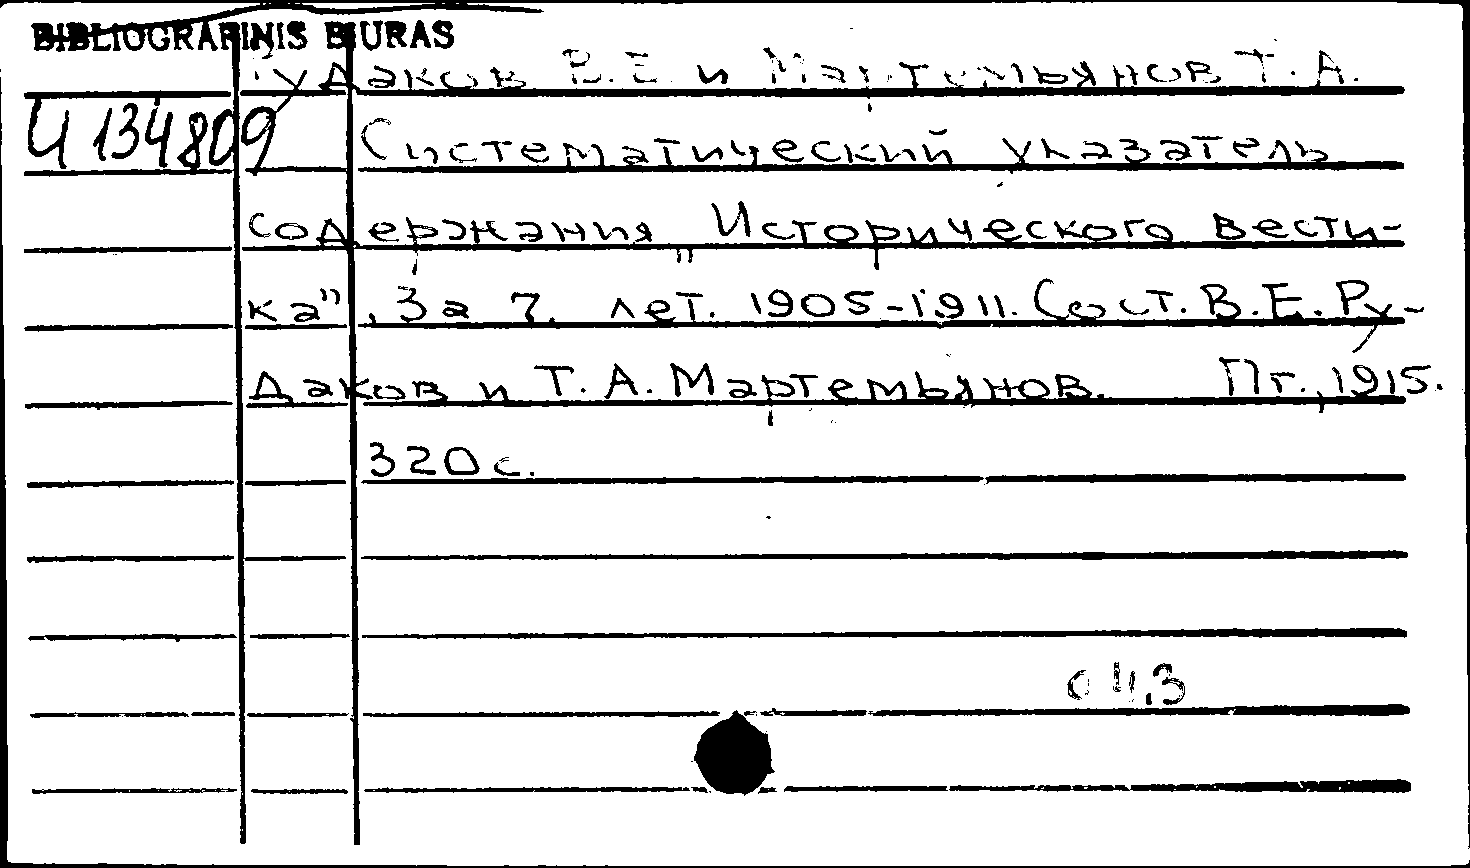 BIBLIOGRAFINIS BIURAS
Рудаков В.Е. и Мартемьянов Т.А.
Ч 134809
Систематический указатель
содержания „Исторического вести-
ка", За 7. лет. 1905-1911. Сост. В.Е. Ру-
даков и Т.А. Мартемьянов. Пг., 1915.
320 с.